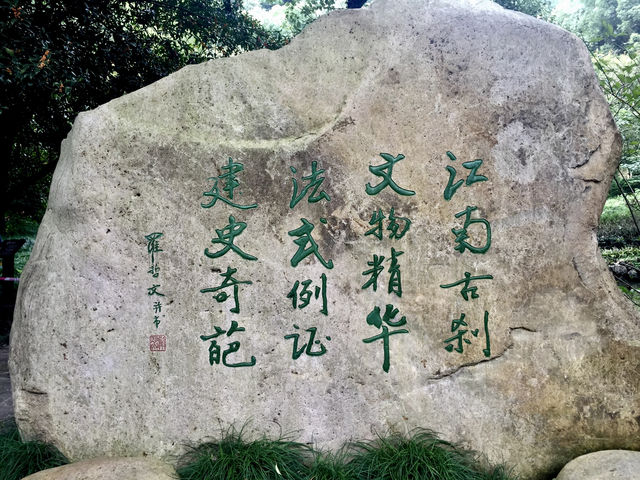 江南古刹
文物精华
法式例证
建史奇葩
罗哲文